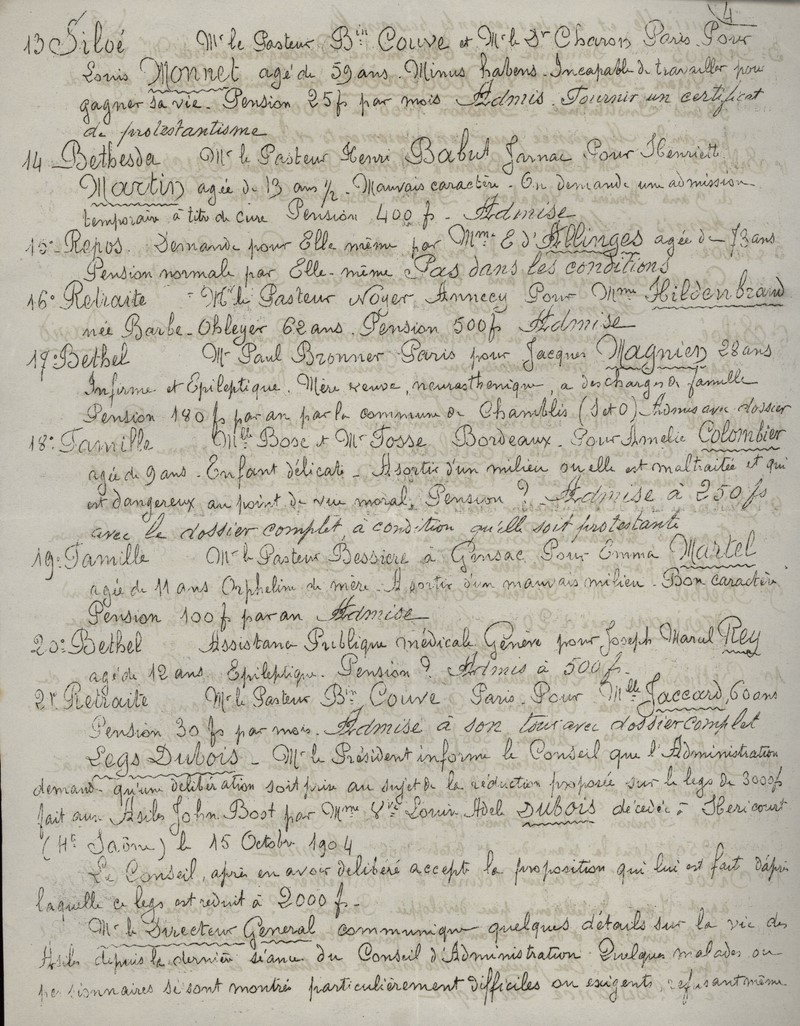 4
13 Siloé Mr le Pasteur Bin Couve et Mr le Dr Charon Paris Pour
Louis Monnet agé de 59 ans. Minus habens. Incapable de travailler pour
gagner sa vie. Pension 25 f par mois Admis. Fournir un certificat
de protestantisme
14 Bethesda Mr le Pasteur Henri Babut Jarnac Pour Henriett
Martin agée de 13 ans 1/2. Mauvais caractère. On demande une admission
temporaire à titre de cure Pension 400 f. Admise
15° Repos. Demande pour Elle même par Mme E d'Allinges agée de 73 ans
Pension normale par Elle-même Pas dans les conditions
16° Retraite Mr le Pasteur Noyer Annecy Pour Mme Hildenbrand
née Barbe-Obleyer 62 ans. Pension 500 f Admise
17° Bethel Mr Paul Bronner Paris pour Jacques Magnien 28 ans
Infirme et Epileptique. Mère veuve, neurasthenique, a des charges de famille
Pension 180 f par an par la commune de Chamblis (S et O) Admis avec dossier
18° Famille Mlle Bosc et Mr Fosse Bordeaux. Pour Amelie Colombier
agée de 9 ans. Enfant délicate. A sortir d'un milieu ou elle est maltraitée et qui
est dangereux au point de vue moral. Pension ? Admise à 250 fs
avec le dossier complet, à condition qu'elle soit protestante
19° Famille Mr le Pasteur Bessiere à Gensac Pour Emma Martel
agée de 11 ans Orpheline de mère. A sortir d'un mauvais milieu. Bon caractère
Pension 100 f par an Admise
20° Bethel Assistance Publique médicale Genève pour Joseph Marcel Rey
agé de 12 ans Epileptique. Pension ? Admis à 500 f.
21° Retraite Mr le Pasteur Bin Couve Paris. Pour Mlle Jaccard, 60 ans
Pension 30 fs par mois. Admise à son tour avec dossier complet
Legs Dubois. Mr le Président informe le Conseil que l'Administration
demande qu'une délibération soit prise au sujet de la réduction proposée sur le legs de 3000 f
fait aux Asiles John Bost par Mme Vve Louise Adele Dubois décédée à Hericourt
(Hte Saône) le 15 Octobre 1904
Le Conseil, après en avoir delibéré accepte la proposition qui lui est faite d'après
laquelle ce legs est réduit à 2000 f.
Mr le Directeur General communique quelques détails sur la vie des
Asiles depuis la dernière séance du Conseil d'Administration Quelques malades ou
pensionnaires se sont montrés particulièrement difficiles ou exigents, refusant même